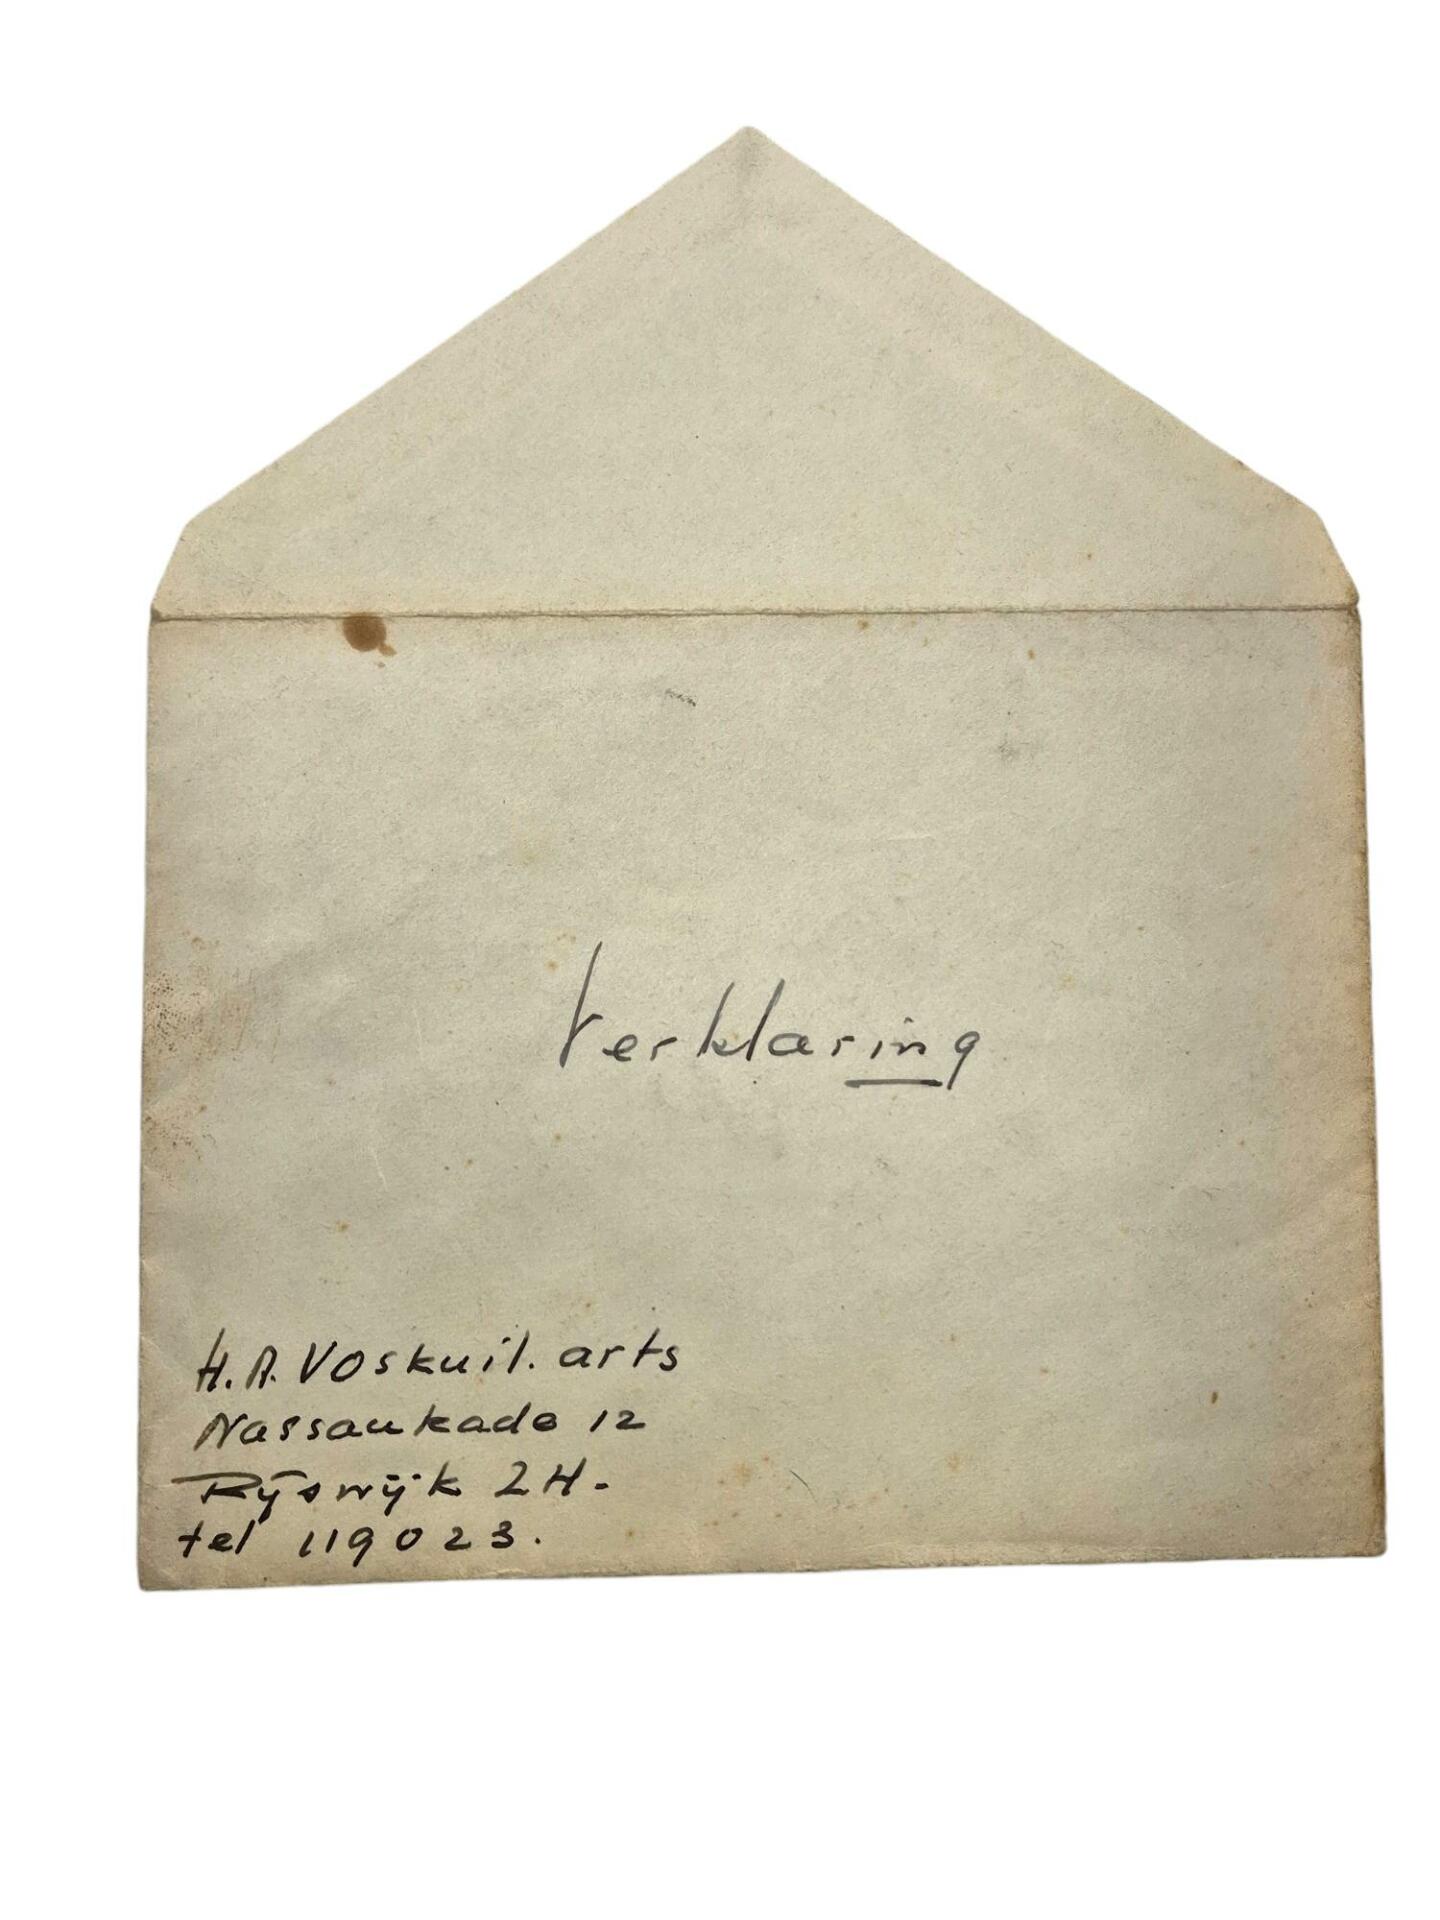 Verklaring
H.A. Voskuil. arts
Nassaukade 12
Rijswijk ZH.
tel 119023.